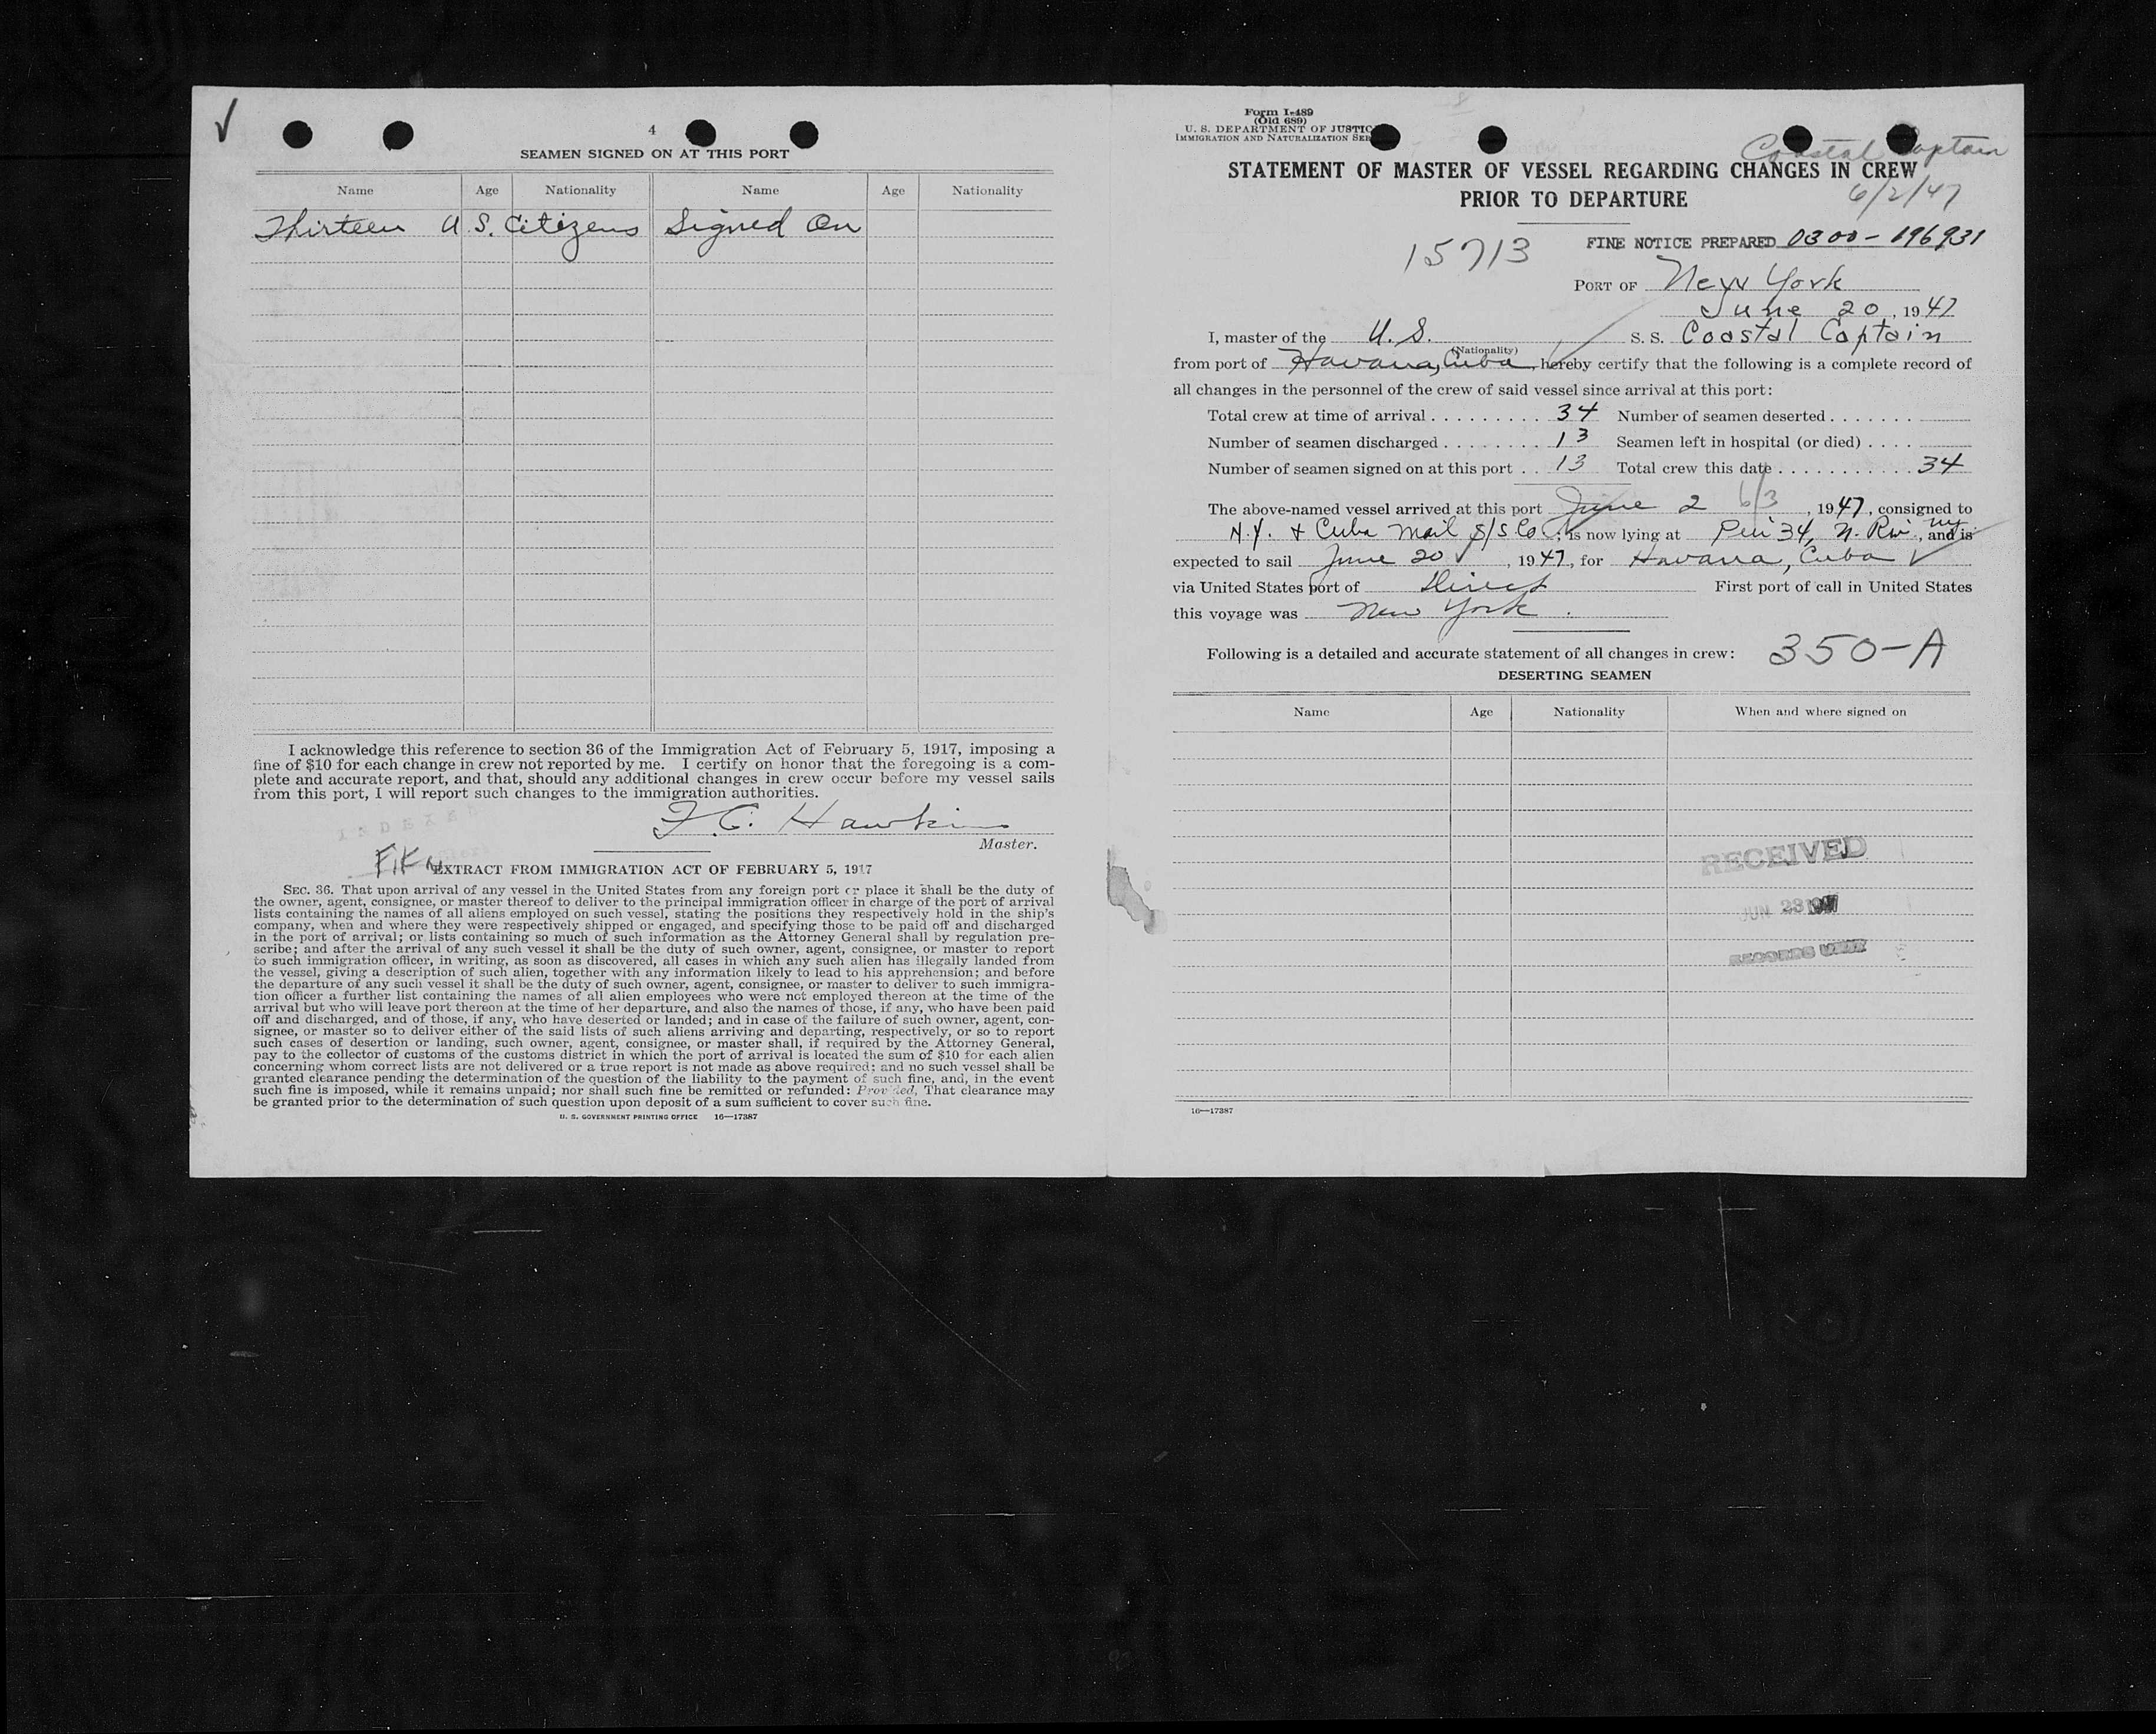 4
SEAMEN SIGNED ON AT THIS PORT
Name Age Nationality Name Age Nationality
Thirteen U.S. Citizens Signed On
I acknowledge this reference to section 36 of the Immigration Act of February 5, 1917, imposing a
fine of $10 for each change in crew not reported by me. I certify on honor that the foregoing is a com-
plete and accurate report, and that, should any additional changes in crew occur before my vessel sails
from this port, I will report such changes to the immigration authorities.
INDEXED
F. C. Hawkins
Master.
EXTRACT FROM IMMIGRATION ACT OF FEBRUARY 5, 1917
SEC. 36. That upon arrival of any vessel in the United States from any foreign port or place it shall be the duty of
the owner, agent, consignee, or master thereof to deliver to the principal immigration officer in charge of the port of arrival
lists containing the names of all aliens employed on such vessel, stating the positions they respectively hold in the ship's
company, when and where they were respectively shipped or engaged, and specifying those to be paid off and discharged
in the port of arrival; or lists containing so much of such information as the Attorney General shall by regulation pre-
scribe; and after the arrival of any such vessel it shall be the duty of such owner, agent, consignee, or master to report
to such immigration officer, in writing, as soon as discovered, all cases in which any such alien has illegally landed from
the vessel, giving a description of such alien, together with any information likely to lead to his apprehension; and before
the departure of any such vessel it shall be the duty of such owner, agent, consignee, or master to deliver to such immigra-
tion officer a further list containing the names of all alien employees who were not employed thereon at the time of the
arrival but who will leave port thereon at the time of her departure, and also the names of those, if any, who have been paid
off and discharged, and of those, if any, who have deserted or landed; and in case of the failure of such owner, agent, con-
signee, or master so to deliver either of the said lists of such aliens arriving and departing, respectively, or so to report
such cases of desertion or landing, such owner, agent, consignee, or master shall, if required by the Attorney General,
pay to the collector of customs of the customs district in which the port of arrival is located the sum of $10 for each alien
concerning whom correct lists are not delivered or a true report is not made as above required; and no such vessel shall be
granted clearance pending the determination of the question of the liability to the payment of such fine, and, in the event
such fine is imposed, while it remains unpaid; nor shall such fine be remitted or refunded: Provided, That clearance may
be granted prior to the determination of such question upon deposit of a sum sufficient to cover such fine.
U. S. GOVERNMENT PRINTING OFFICE 16—17387
Form I-489
(Old 689)
U. S. DEPARTMENT OF JUSTIC
IMMIGRATION AND NATURALIZATION SER
Coastal Captain
STATEMENT OF MASTER OF VESSEL REGARDING CHANGES IN CREW
PRIOR TO DEPARTURE
6/2/47
15713
FINE NOTICE PREPARED 0300-196931
PORT OF New York
June 20, 1947
I, master of the U.S. S. S. Coastal Captain
(Nationality)
from port of Havana, Cuba, hereby certify that the following is a complete record of
all changes in the personnel of the crew of said vessel since arrival at this port:
Total crew at time of arrival . . . . . . . . . 34 Number of seamen deserted . . . . . . .
Number of seamen discharged . . . . . . . . 13 Seamen left in hospital (or died) . . . .
Number of seamen signed on at this port . . 13 Total crew this date . . . . . . . . . . . 34
The above-named vessel arrived at this port June 2 6/3, 1947, consigned to
N.Y. & Cuba Mail S/S Co.; is now lying at Pier 34, N. Riv. NY, and is
expected to sail June 20, 1947, for Havana, Cuba
via United States port of Direct First port of call in United States
this voyage was New York.
Following is a detailed and accurate statement of all changes in crew: 350-A
DESERTING SEAMEN
Name Age Nationality When and where signed on
RECEIVED
JUN 23 1947
RECORDS UNIT
16—17387